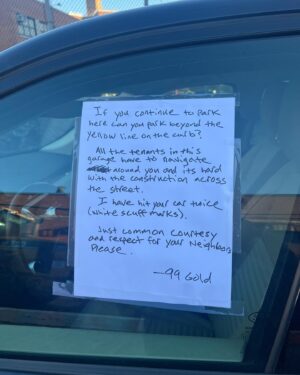 If you continue to park
here can you park beyond the
yellow line on the curb?
All the tenants in this
garage have to navigate
around you and its hard
with the construction across
the street.
I have hit your car twice
(white scuff marks).
Just common courtesy
and respect for your Neighbors
Please.
—99 Gold